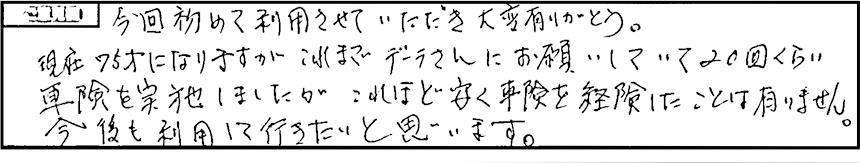 今回初めて利用させていただき大変有りがとう。
現在75才になりますがこれまでデーラさんにお願いしていて20回くらい
車険を実施しましたがこれほど安く車険を経険したことは有りません。
今後も利用して行きたいと思います。